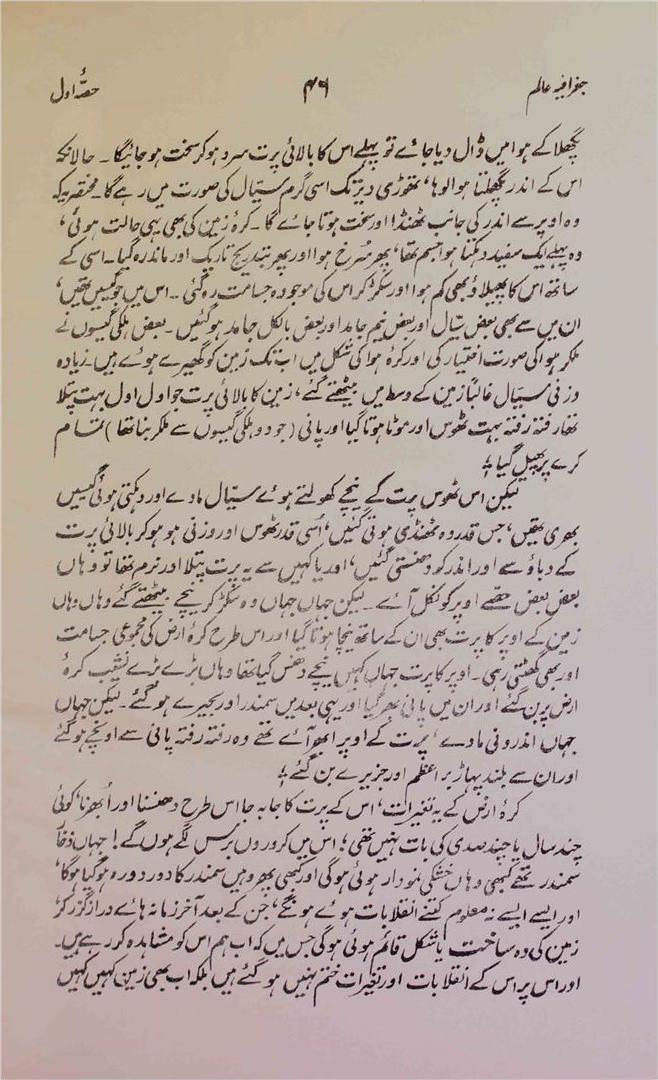 جغرافیہ عالم
۴۶
حصّۂ اول
پگھلا کے ہوا میں ڈال دیا جائے تو پہلے اس کا بالائی پرت سرد ہوکر سخت ہو جائیگا ۔ حالانکہ
اس کے اندر پگھلتا ہوا لوہا، تھوڑی دیر تک اسی گرم سیّال کی صورت میں رہے گا۔ مختصر یہ کہ
وہ اوپر سے اندر کی جانب ٹھنڈا اور سخت ہوتا جائے گا ۔ کرۂ زمین کی بھی یہی حالت ہوئی،
وہ پہلے ایک سفید دہکتا ہوا جسم تھا، پھر سُرخ ہوا اور پھر بتدریج تاریک اور ماند رہ گیا۔ اسی کے
ساتھ اس کا پھیلاؤ بھی کم ہوا اور سکڑ کر اس کی موجودہ جسامت رہ گئی ۔ اس میں جو گیسیں تھیں،
ان میں سے بھی بعض سیّال اور بعض نیم جامد اور بعض بالکل جامد ہوگئیں۔ بعض ہلکی گیسوں نے
ملکر ہوا کی صورت اختیار کی اور کرۂ ہوا کی شکل میں اب تک زمین کو گھیرے ہوئے ہیں۔ زیادہ
وزنی سیّال غالباً زمین کے وسط میں بیٹھتے گئے، زمین کا بالائی پرت جو اول اول بہت پتلا
تھا رفتہ رفتہ بہت ٹھوس اور موٹا ہوتا گیا اور پانی (جو دو ہلکی گیسوں سے ملکر بنا تھا) تمام
کرے پر پھیل گیا ؛
لیکن اس ٹھوس پرت کے نیچے کھولتے ہوئے سیّال مادے اور دہکتی ہوئی گیسیں
بھری تھیں، جس قدر وہ ٹھنڈی ہوتی گئیں، اُسی قدر ٹھوس اور وزنی ہو ہو کر بالائی پرت
کے دباؤ سے اور اندر کو دھنستی گئیں، اور یا کہیں سے یہ پرت پتلا اور نرم تھا تو وہاں
بعض بعض حصّے اوپر کو نکل آئے ۔ لیکن جہاں جہاں وہ سکڑ کر نیچے بیٹھتے گئے وہاں وہاں
زمین کے اوپر کا پرت بھی ان کے ساتھ نیچا ہوتا گیا اور اس طرح کرۂ ارض کی مجموعی جسامت
اور بھی گھٹتی رہی ۔ اوپر کا پرت جہاں کہیں نیچے دھنس گیا تھا وہاں بڑے بڑے نشیب کرۂ
ارض پر بن گئے اور ان میں پانی بھر گیا اور یہی بعد میں سمندر اور بحیرے ہو گئے ۔ لیکن جہاں
جہاں اندرونی مادے، پرت کے اوپر ابھر آئے تھے وہ رفتہ رفتہ پانی سے اونچے ہو گئے
اور ان سے بلند پہاڑ بر اعظم اور جزیرے بن گئے ؛
کرۂ ارض کے یہ تغیرات، اس کے پرت کا جا بہ جا اس طرح دھنسنا اور اُبھرنا، کوئی
چند سال یا چند صدی کی بات نہیں تھی؛ اس میں کروروں برس لگے ہوں گے! جہاں ذخّار
سمندر تھے کبھی وہاں خشکی نمودار ہوئی ہوگی اور کبھی پھر وہیں سمندر کا دور دورہ ہو گیا ہوگا،
اور ایسے ایسے نہ معلوم کتنے انقلابات ہوئے ہونگے، جن کے بعد آخر زمانہ ہائے دراز گزر کر،
زمین کی وہ ساخت یا شکل قائم ہوئی ہوگی جس میں کہ اب ہم اس کو مشاہدہ کر رہے ہیں۔
اور اس پر اس کے انقلابات اور تغیرات ختم نہیں ہو گئے ہیں بلکہ اب بھی زمین کہیں کہیں